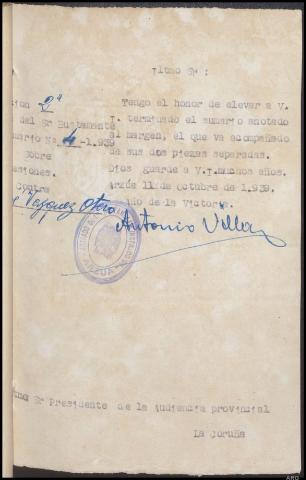 Iltmo Sr:
sion 2ª
del Sr Bustamante
mario No 4-1.939
Sobre
siones.
contra
Vazquez Otero
Tengo el honor de elevar a V.
I. terminado el sumario anotado
al margen, el que va acompañado
de sus dos piezas separadas.
Dios guarde a V.I. muchos años.
Arzúa 11 de octubre de 1.939.
Año de la Victoria.
ARZUA
Antonio Villar
tmo Sr Presidente de la Audiencia provincial
La Coruña